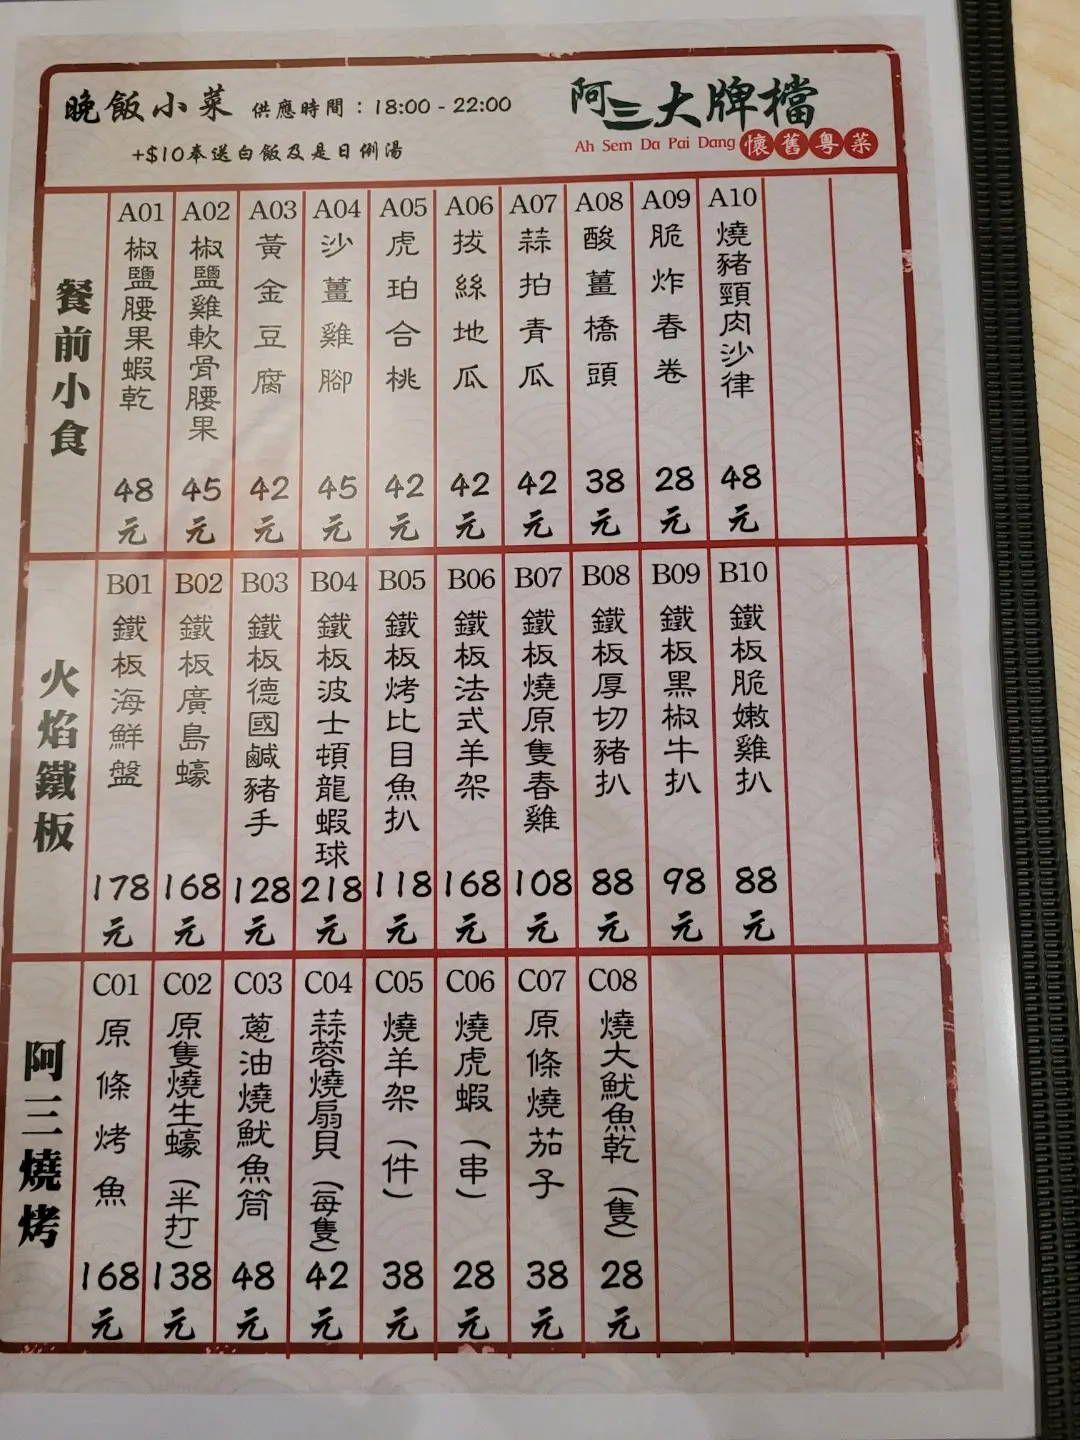 晚飯小菜 供應時間：18:00 - 22:00
+$10奉送白飯及是日例湯
阿三大牌檔
Ah Sem Da Pai Dang 懷舊粵菜
餐前小食
A01 椒鹽腰果蝦乾 48元
A02 椒鹽雞軟骨腰果 45元
A03 黃金豆腐 42元
A04 沙薑雞腳 45元
A05 虎珀合桃 42元
A06 拔絲地瓜 42元
A07 蒜拍青瓜 42元
A08 酸薑橋頭 38元
A09 脆炸春卷 28元
A10 燒豬頸肉沙律 48元
火焰鐵板
B01 鐵板海鮮盤 178元
B02 鐵板廣島蠔 168元
B03 鐵板德國鹹豬手 128元
B04 鐵板波士頓龍蝦球 218元
B05 鐵板烤比目魚扒 118元
B06 鐵板法式羊架 168元
B07 鐵板燒原隻春雞 108元
B08 鐵板厚切豬扒 88元
B09 鐵板黑椒牛扒 98元
B10 鐵板脆嫩雞扒 88元
阿三燒烤
C01 原條烤魚 168元
C02 原隻燒生蠔（半打） 138元
C03 蔥油燒魷魚筒 48元
C04 蒜蓉燒扇貝（每隻） 42元
C05 燒羊架（件） 38元
C06 燒虎蝦（串） 28元
C07 原條燒茄子 38元
C08 燒大魷魚乾（隻） 28元